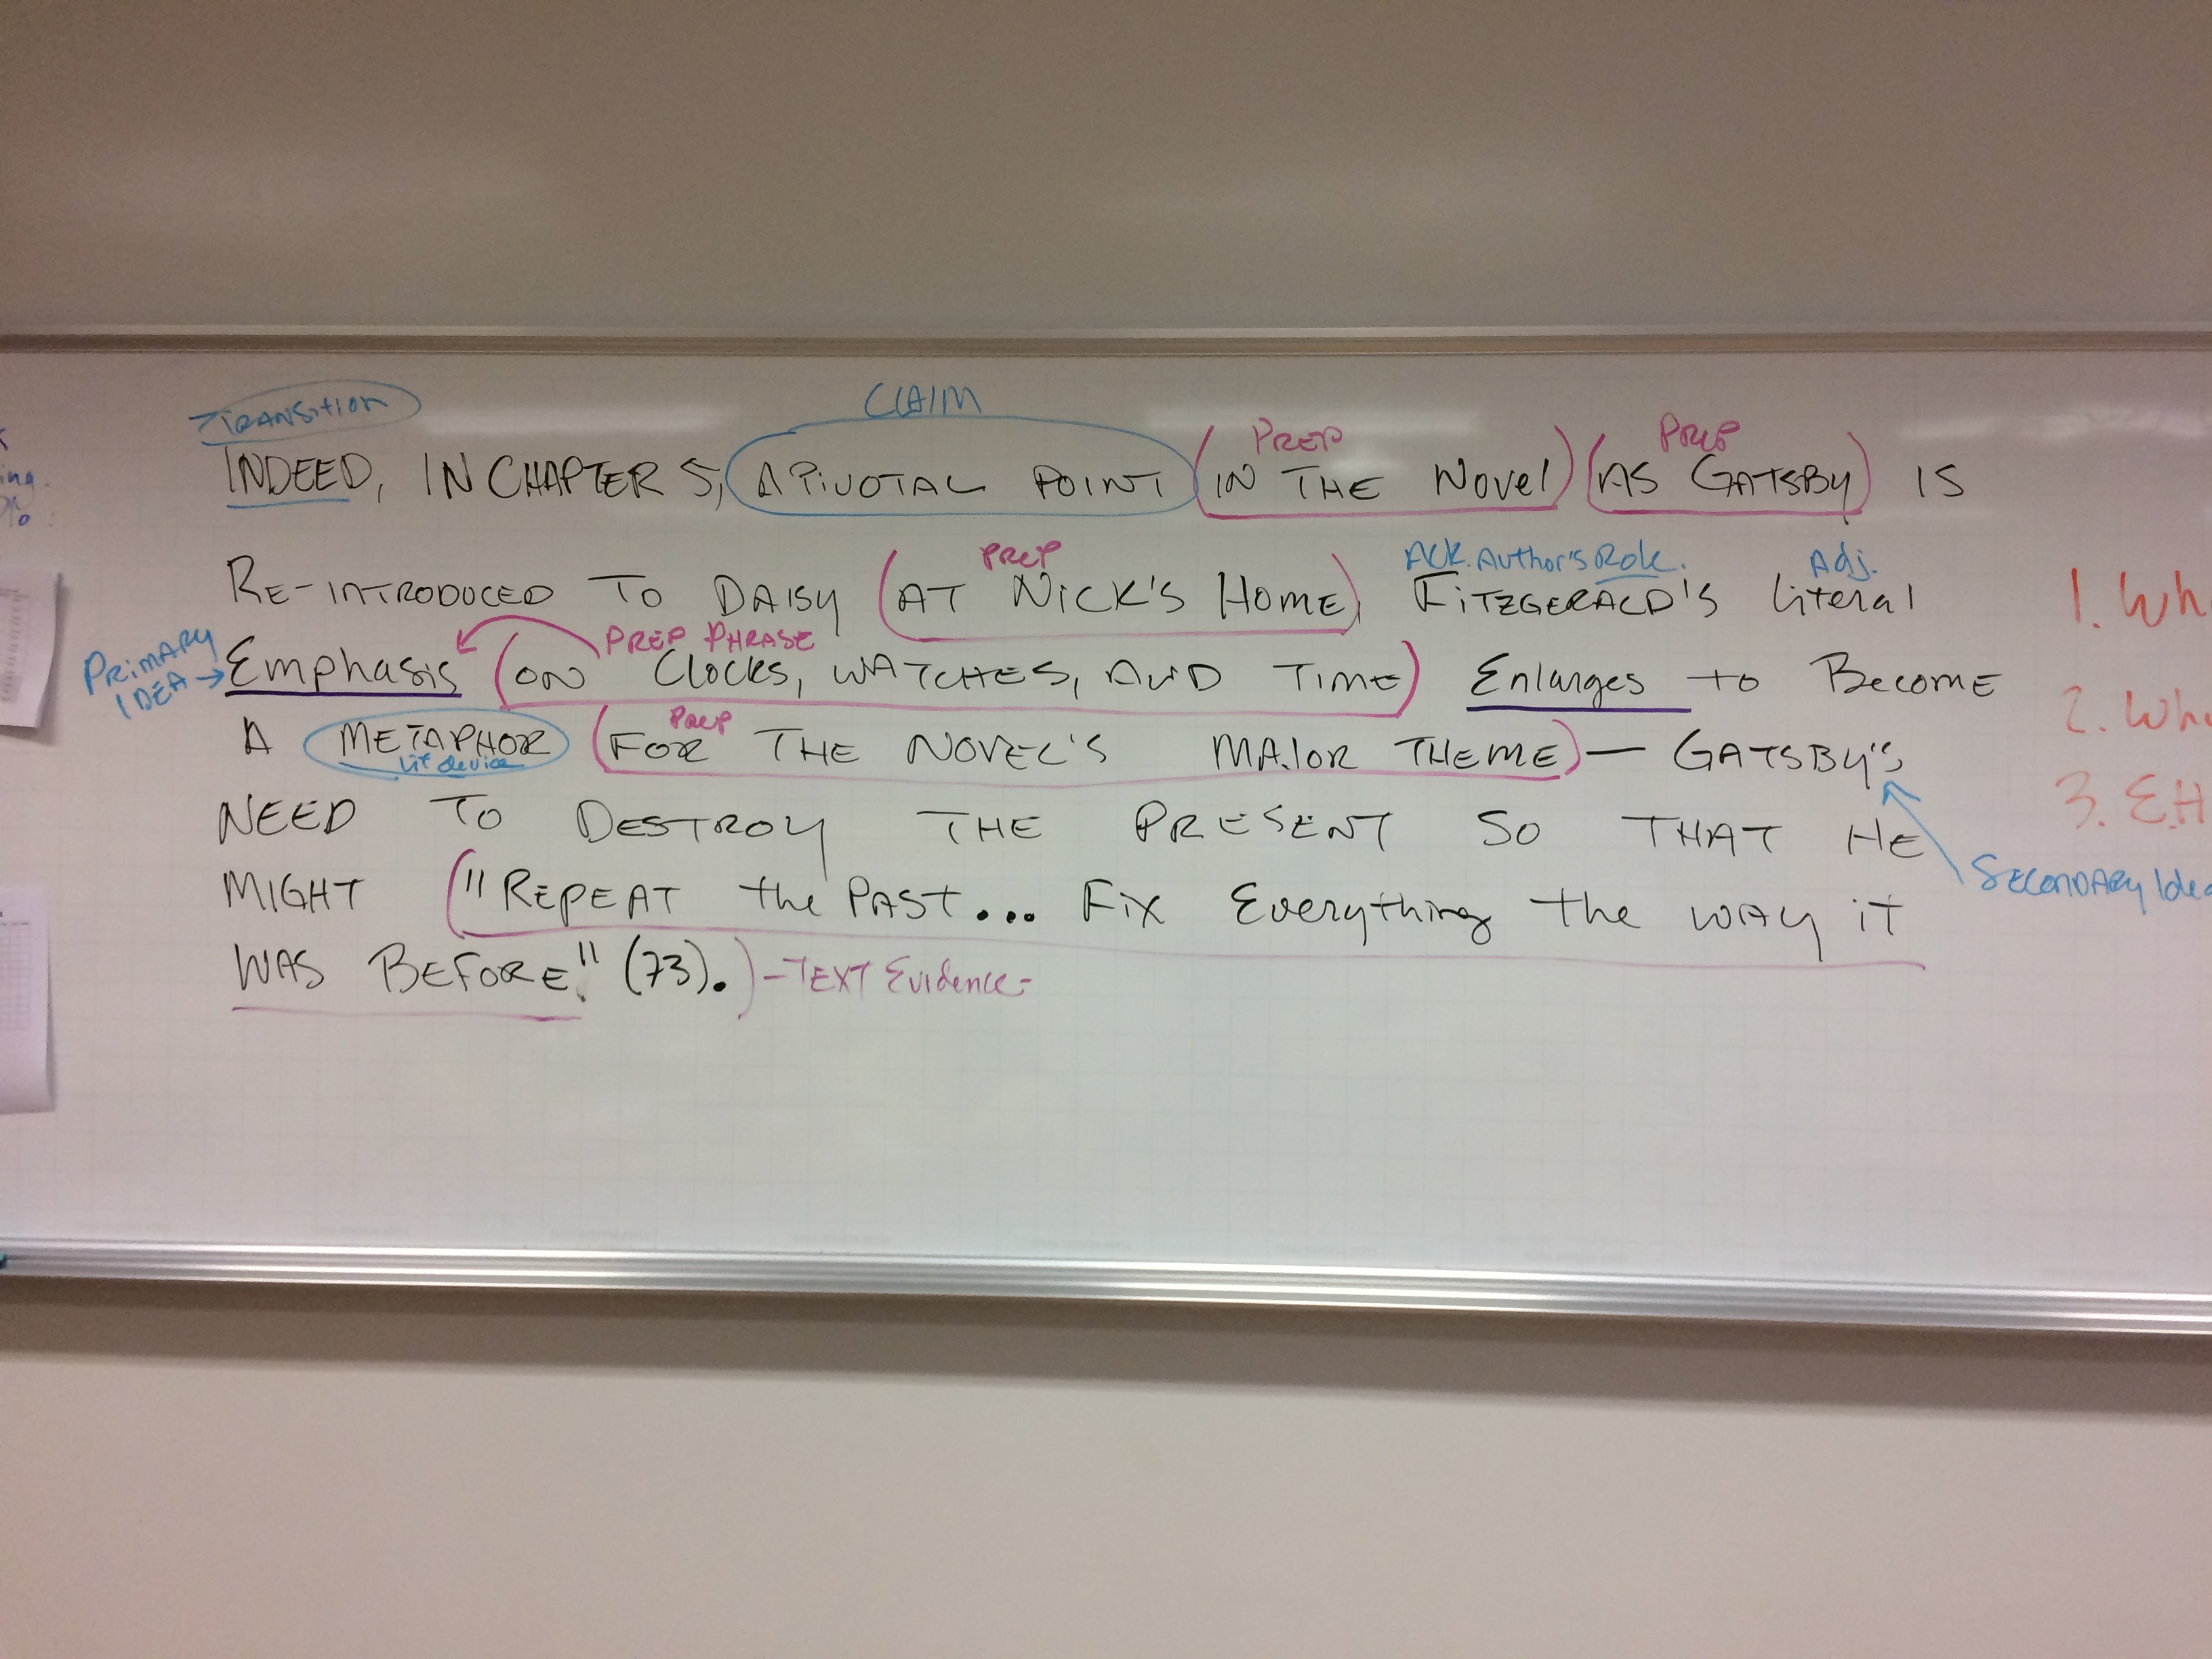 TRANSITION
CLAIM
PREP
PREP
INDEED, IN CHAPTER 5, A PIVOTAL POINT (IN THE NOVEL) (AS GATSBY) IS
PREP
ACK. AUTHOR'S ROLE.
Adj.
RE-INTRODUCED TO DAISY (AT NICK'S HOME), FITZGERALD'S Literal
PREP PHRASE
PRIMARY
IDEA →
Emphasis (ON Clocks, WATCHES, AND TIME) Enlarges to Become
PREP
A METAPHOR (FOR THE NOVEL'S MAJOR THEME) — GATSBY'S
Lit device
NEED TO DESTROY THE PRESENT SO THAT HE
SECONDARY
MIGHT ("REPEAT the PAST... Fix Everything the WAY iT
WAS BEFORE" (73).) - TEXT Evidence -
ing.
1.
2.
3. E.H